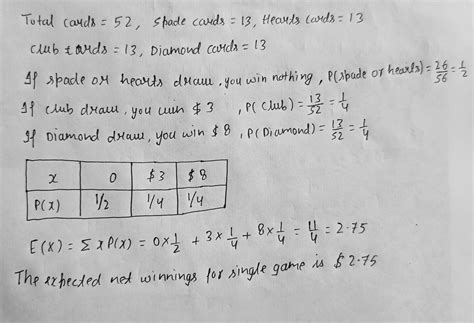 Total cards = 52, Spade cards = 13, Hearts cards = 13
Club cards = 13, Diamond cards = 13
If spade or hearts draw, you win nothing, P(spade or hearts) = 26/56 = 1/2
If club draw, you win $3, P(Club) = 13/52 = 1/4
If Diamond draw, you win $8, P(Diamond) = 13/52 = 1/4
x 0 $3 $8
P(x) 1/2 1/4 1/4
E(X) = Σ x P(x) = 0×1/2 + 3×1/4 + 8×1/4 = 11/4 = 2.75
The expected net winnings for single game is $2.75